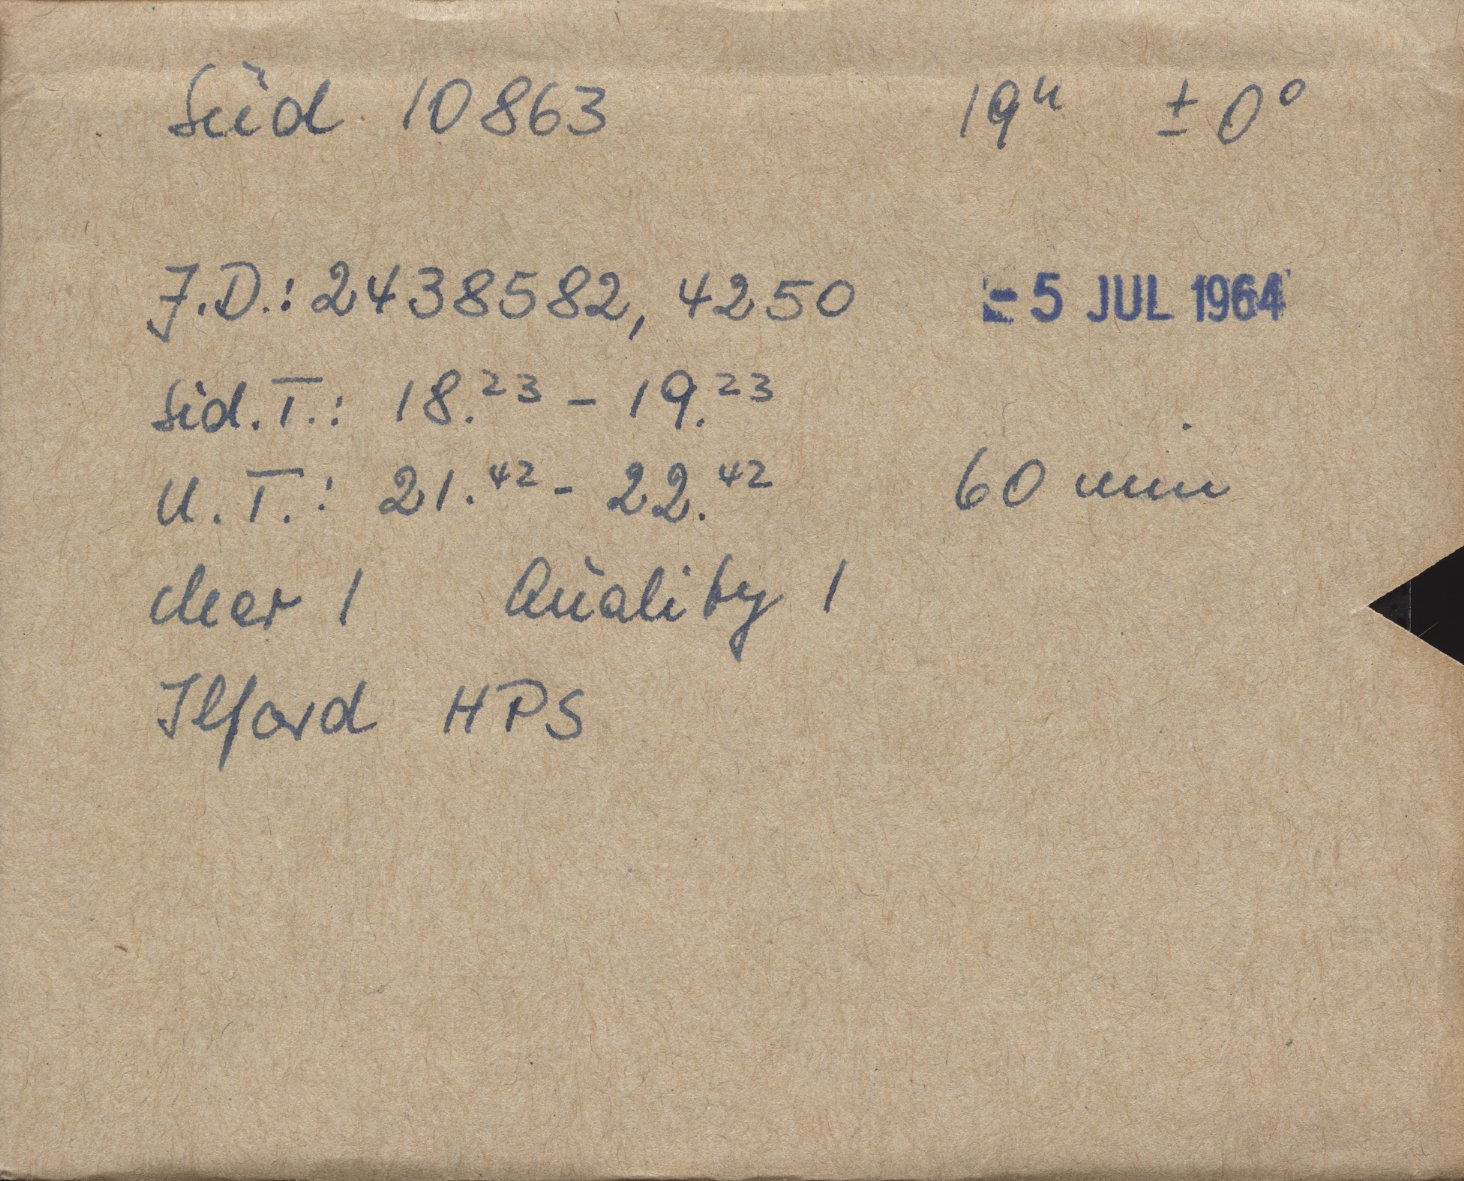 Süd 10863 19ʰ ± 0°
J.D.: 2438582, 4250 -5 JUL 1964
Sid.T.: 18.²³ - 19.²³
U.T.: 21.⁴² - 22.⁴² 60 min
clear 1 Quality 1
Ilford HPS